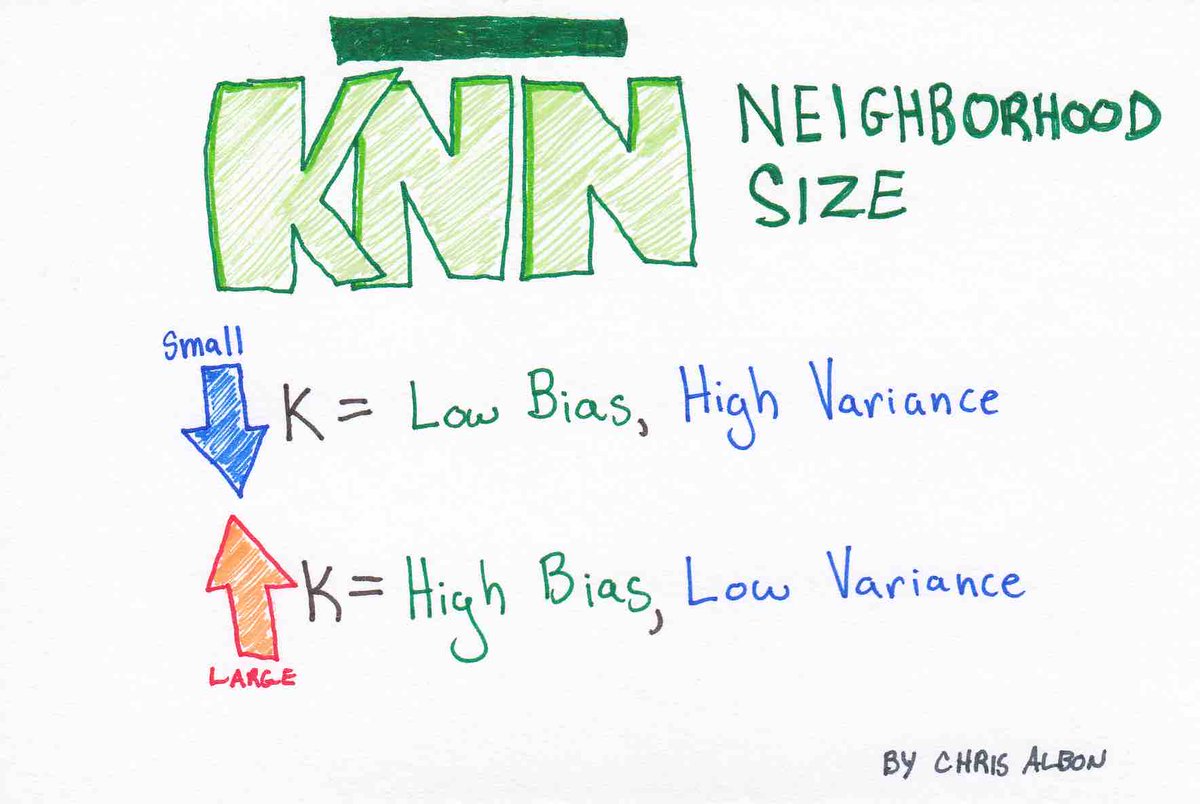 KNN NEIGHBORHOOD
SIZE
Small
K = Low Bias, High Variance
K = High Bias, Low Variance
LARGE
BY CHRIS ALBON